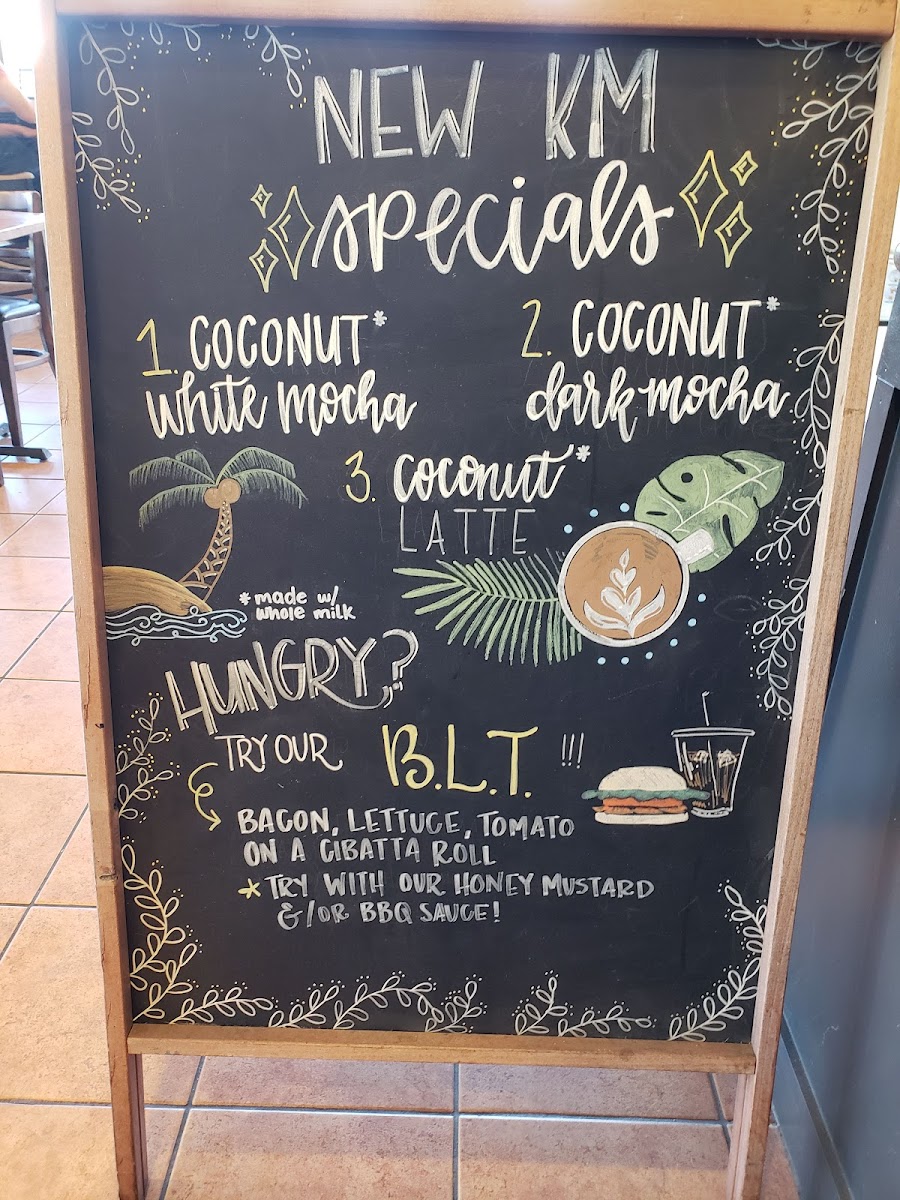 NEW KM
specials
1. COCONUT*
white mocha
2. COCONUT*
dark mocha
3. coconut*
LATTE
*made w/
whole milk
HUNGRY?
TRY OUR B.L.T. !!!
BACON, LETTUCE, TOMATO
ON A CIBATTA ROLL
*TRY WITH OUR HONEY MUSTARD
&/OR BBQ SAUCE!